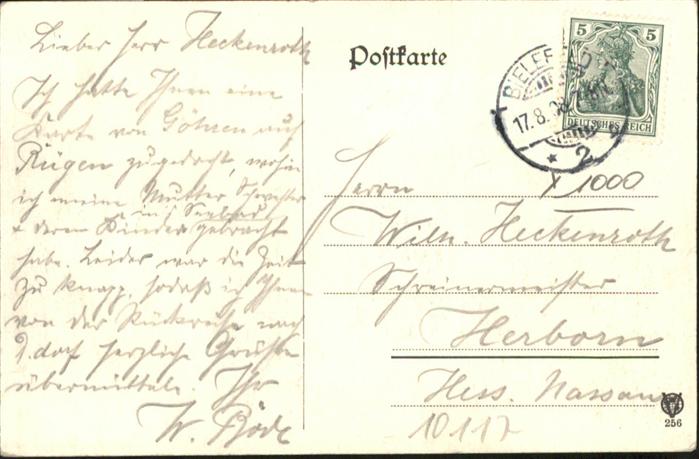 Lieber Herr Heckenroth
Ich hatte Ihnen eine
Karte von Göhren auf
Rügen zugedacht, wohin
ich meine Mutter Schwester
in's Seebad
+ deren Kinder gebracht
habe. Leider war die Zeit
zu knapp, sodaß ich Ihnen
von der Rückreise nach
D.dorf herzliche Grüße
übermittele. Ihr
W. Böde
Postkarte
5 5
DEUTSCHES REICH
BIELEFELD
17.8.
* 2
x 1000
Herrn
Wilh. Heckenroth
Schreinermeister
Herborn
Hess. Nassau
10117
256